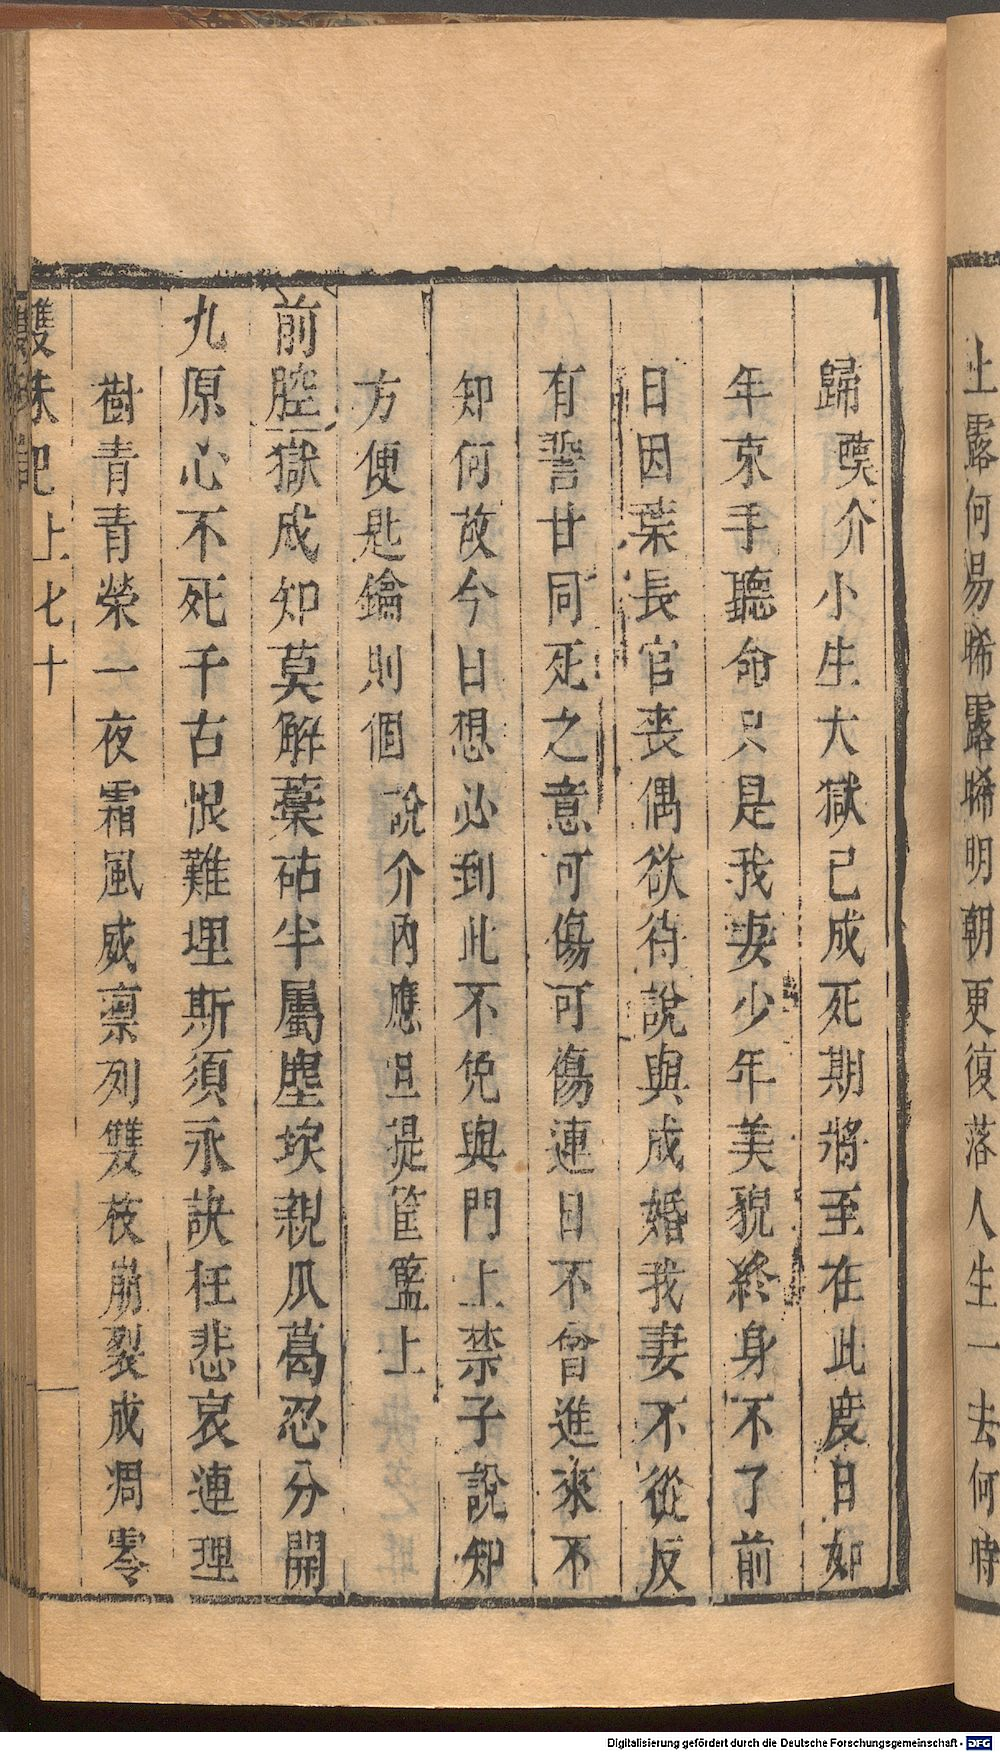 土露何易晞露晞明朝更復落人生一去何時
歸奠介小生大獄已成死期將至在此度日如
年束手聽命只是我妻少年美貌終身不了前
日因葉長官喪偶欲待說與成婚我妻不從反
有誓廿同死之意可傷可傷連日不曾進來不
知何故今日想必到此不免與門上禁子說知
方便匙鑰則個說介內應旦提筐籃上
前腔獄成知莫解藁砧半屬塵埃親瓜葛忍分開
九原心不死千古恨難埋斯須永訣枉悲哀連理
樹青青榮一夜霜風威凛列雙枝崩裂成凋零
雙珠記上七十
Digitalisierung gefördert durch die Deutsche Forschungsgemeinschaft - DFG